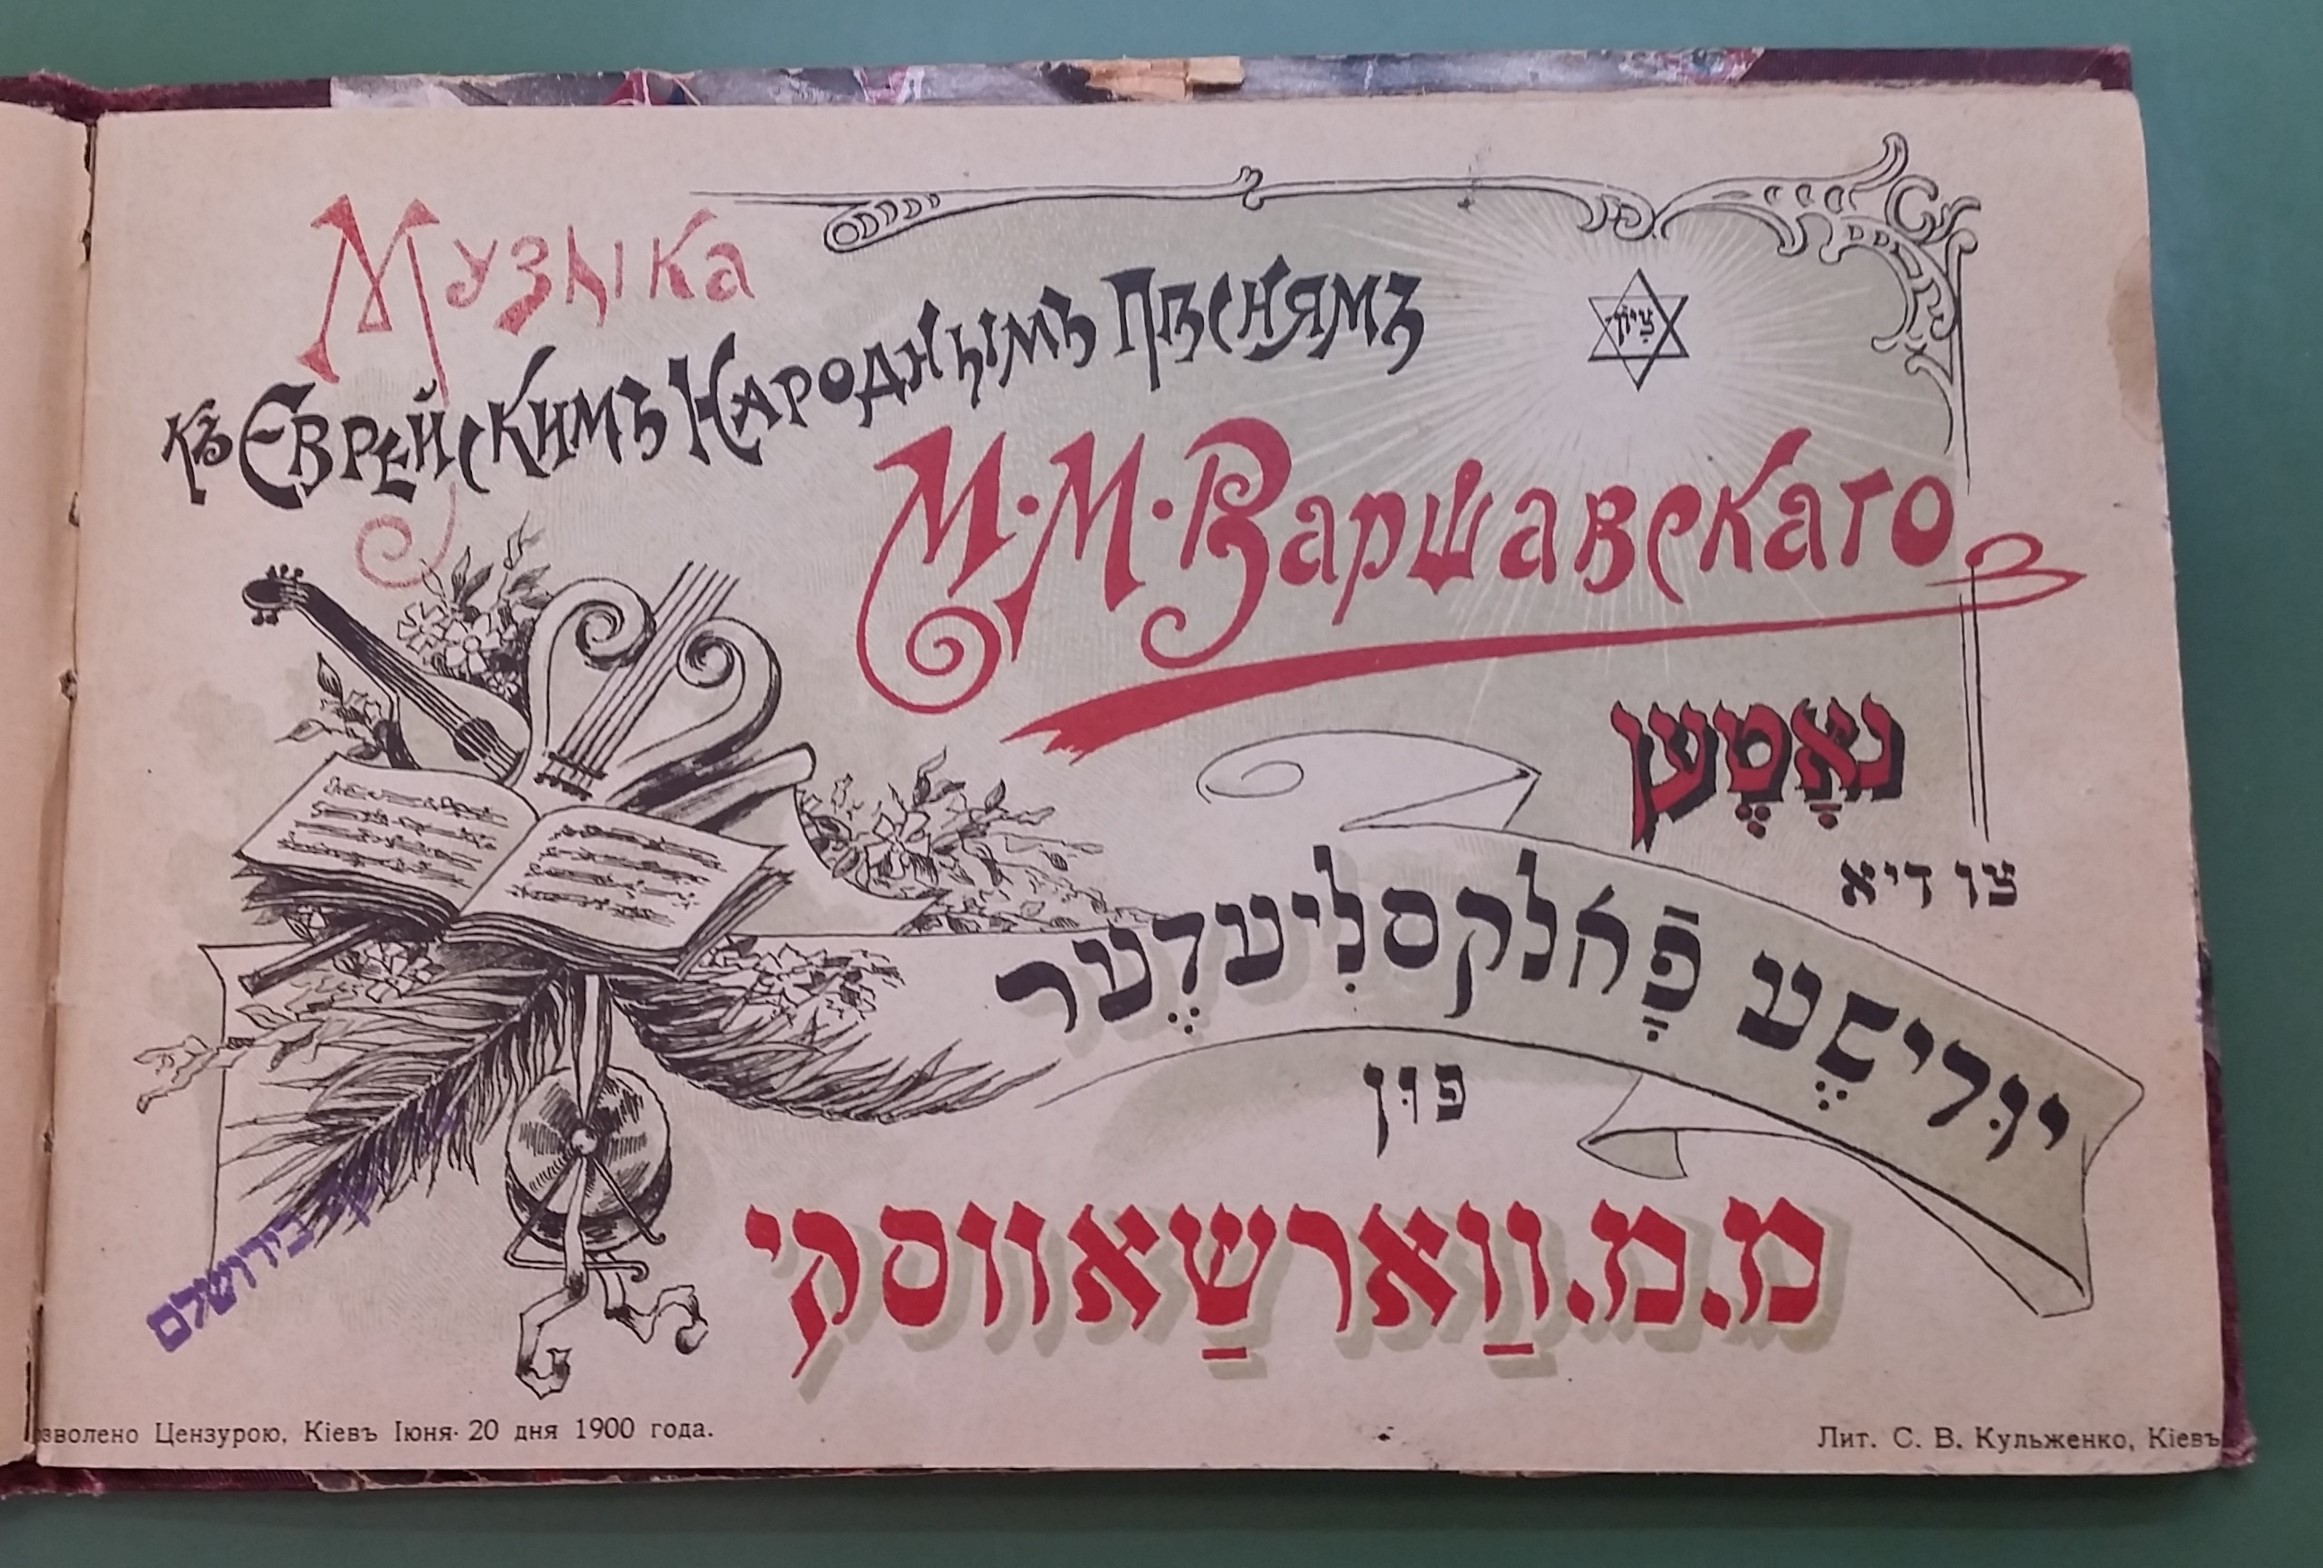 Музыка
къ Еврейскимъ Народнымъ Пѣснямъ
ציון
М. М. Варшавскаго
נאָטֶען
צו דיא
יוּדישֶע פֿאָלקסלִיעדֶער
פוּן
מ. מ. װַארשַאװסקי
בירושלם
зволено Цензурою, Кіевъ Іюня 20 дня 1900 года.
Лит. С. В. Кульженко, Кіевъ